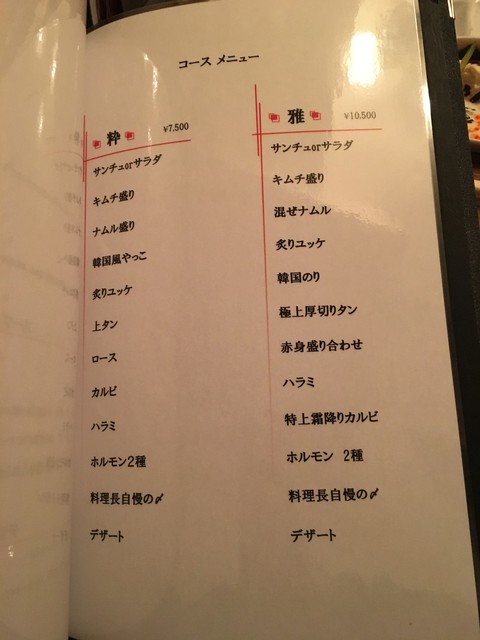 コース メニュー
粋 ¥7,500
サンチュorサラダ
キムチ盛り
ナムル盛り
韓国風やっこ
炙りユッケ
上タン
ロース
カルビ
ハラミ
ホルモン2種
料理長自慢の〆
デザート
雅 ¥10,500
サンチュorサラダ
キムチ盛り
混ぜナムル
炙りユッケ
韓国のり
極上厚切りタン
赤身盛り合わせ
ハラミ
特上霜降りカルビ
ホルモン 2種
料理長自慢の〆
デザート